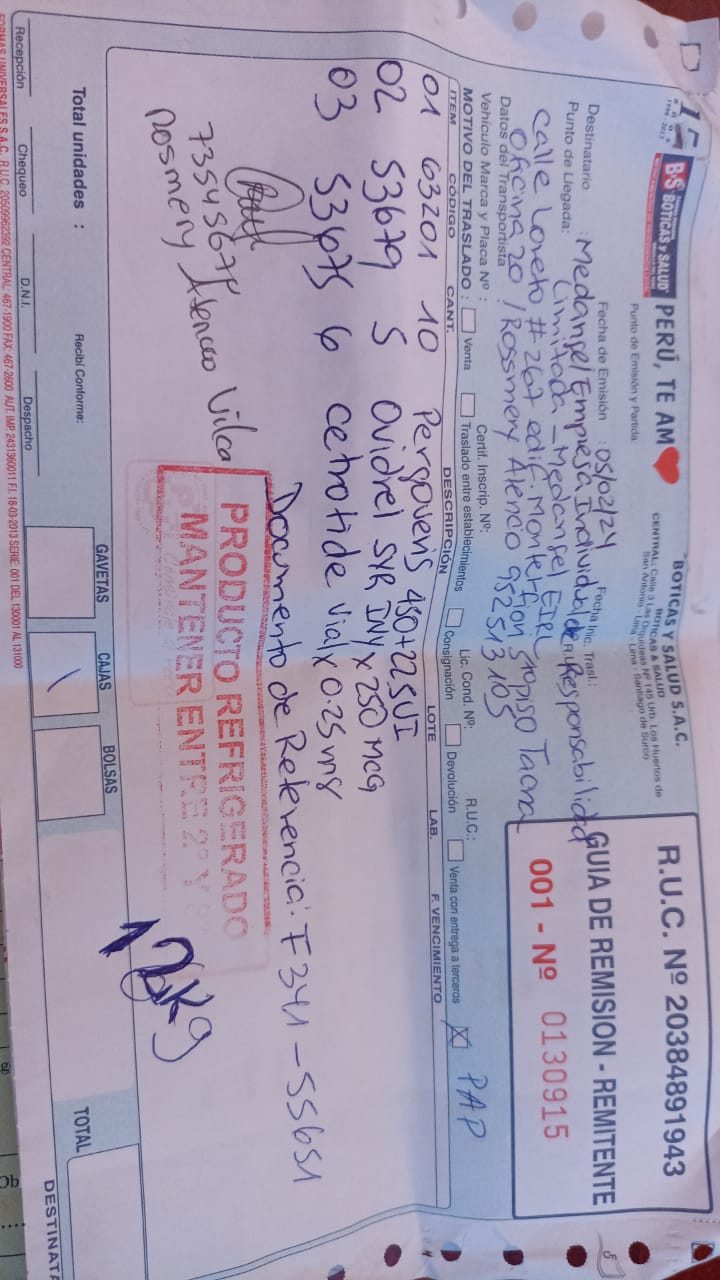 15
B&S BOTICAS Y SALUD
PERÚ, TE AM
"BOTICAS Y SALUD S.A.C.
BOTICAS & SALUD
CENTRAL: Calle 3 Las Orquídeas Nº 145 Urb. Los Huertos de
San Antonio - Lima - Lima - Santiago de Surco
R.U.C. Nº 20384891943
GUIA DE REMISION - REMITENTE
001 - Nº 0130915
Punto de Emisión y Partida
Fecha de Emisión : 05/02/24 Fecha Inic. Trasl.:
Destinatario : Medansel Empresa Individual de Responsabilidad
Punto de Llegada: Limitada _ Medansel EIRL
calle Loreto # 267 edif. Monterfion 5to piso Tacna
Oficina 20 / Rossmery Atencio 952513105
Datos del Transportista
Vehículo Marca y Placa Nº : Certif. Inscrip. Nº: Lic. Cond. Nº: R.U.C.:
MOTIVO DEL TRASLADO : Venta Traslado entre establecimientos Consignación Devolución Venta con entrega a terceros X PAP
ITEM CÓDIGO CANT. DESCRIPCIÓN LOTE LAB. F. VENCIMIENTO
01 63201 10 Pergoveris 450+225UI
02 53679 5 Ovidrel SYR INY x 250 mcg
03 53675 6 cetrotide vial x 0.25 mg
Documento de Referencia: F341-55651
PRODUCTO REFRIGERADO
MANTENER ENTRE 2° Y
Rosmery Atencio Vilca
12Kg
Total unidades : Recibí Conforme:
GAVETAS CAJAS BOLSAS TOTAL
1
Recepción Chequeo D.N.I. Despacho
DESTINATA
FORMAS UNIVERSALES S.A.C. R.U.C. 20509962392 CENTRAL: 467-1900 FAX: 467-2600 AUT. IMP. 2431360011 F.I. 18-03-2013 SERIE 001 DEL 130001 AL 131000